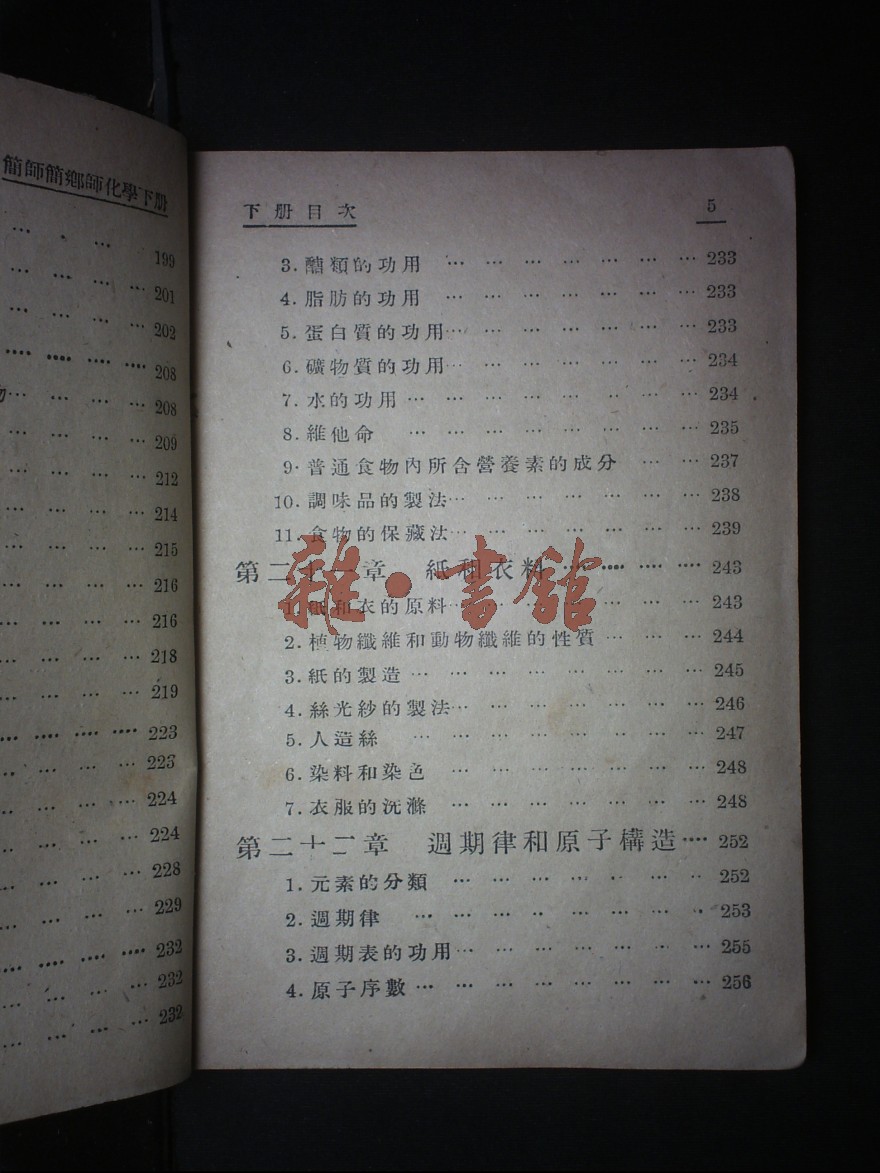 簡師簡鄉師化學下册
… … … 199
… … … 201
… … … 202
···· ···· ···· ···· 208
物… … … … 208
… … … … 209
… … … … 212
… … … … 214
… … … … 215
… … … … 216
… … … … 216
… … … … 218
… … … … 219
···· ···· ···· ···· 223
… … … … 223
… … … … 224
… … … … 224
… … … … 228
… … … … 229
···· ···· ···· ···· 232
… … … … 232
… … … … 232
下册目次 5
3. 醣類的功用 … … … … … … … 233
4. 脂肪的功用 … … … … … … … 233
5. 蛋白質的功用… … … … … … … 233
6. 礦物質的功用… … … … … … … 234
7. 水的功用 … … … … … … … … 234
8. 維他命 … … … … … … … … 235
9. 普通食物內所含營養素的成分 … … 237
10. 調味品的製法… … … … … … … 238
11. 食物的保藏法… … … … … … … 239
第二十一章 紙和衣料 ···· ···· ···· ···· 243
1. 紙和衣的原料 … … … … … … … 243
2. 植物纖維和動物纖維的性質 … … … 244
3. 紙的製造 … … … … … … … … 245
4. 絲光紗的製法… … … … … … … 246
5. 人造絲 … … … … … … … … 247
6. 染料和染色 … … … … … … … 248
7. 衣服的洗滌 … … … … … … … 248
第二十二章 週期律和原子構造 ···· 252
1. 元素的分類 … … … … … … … 252
2. 週期律 … … … … … … … … 253
3. 週期表的功用… … … … … … … 255
4. 原子序數 … … … … … … … … 256
雜·書館